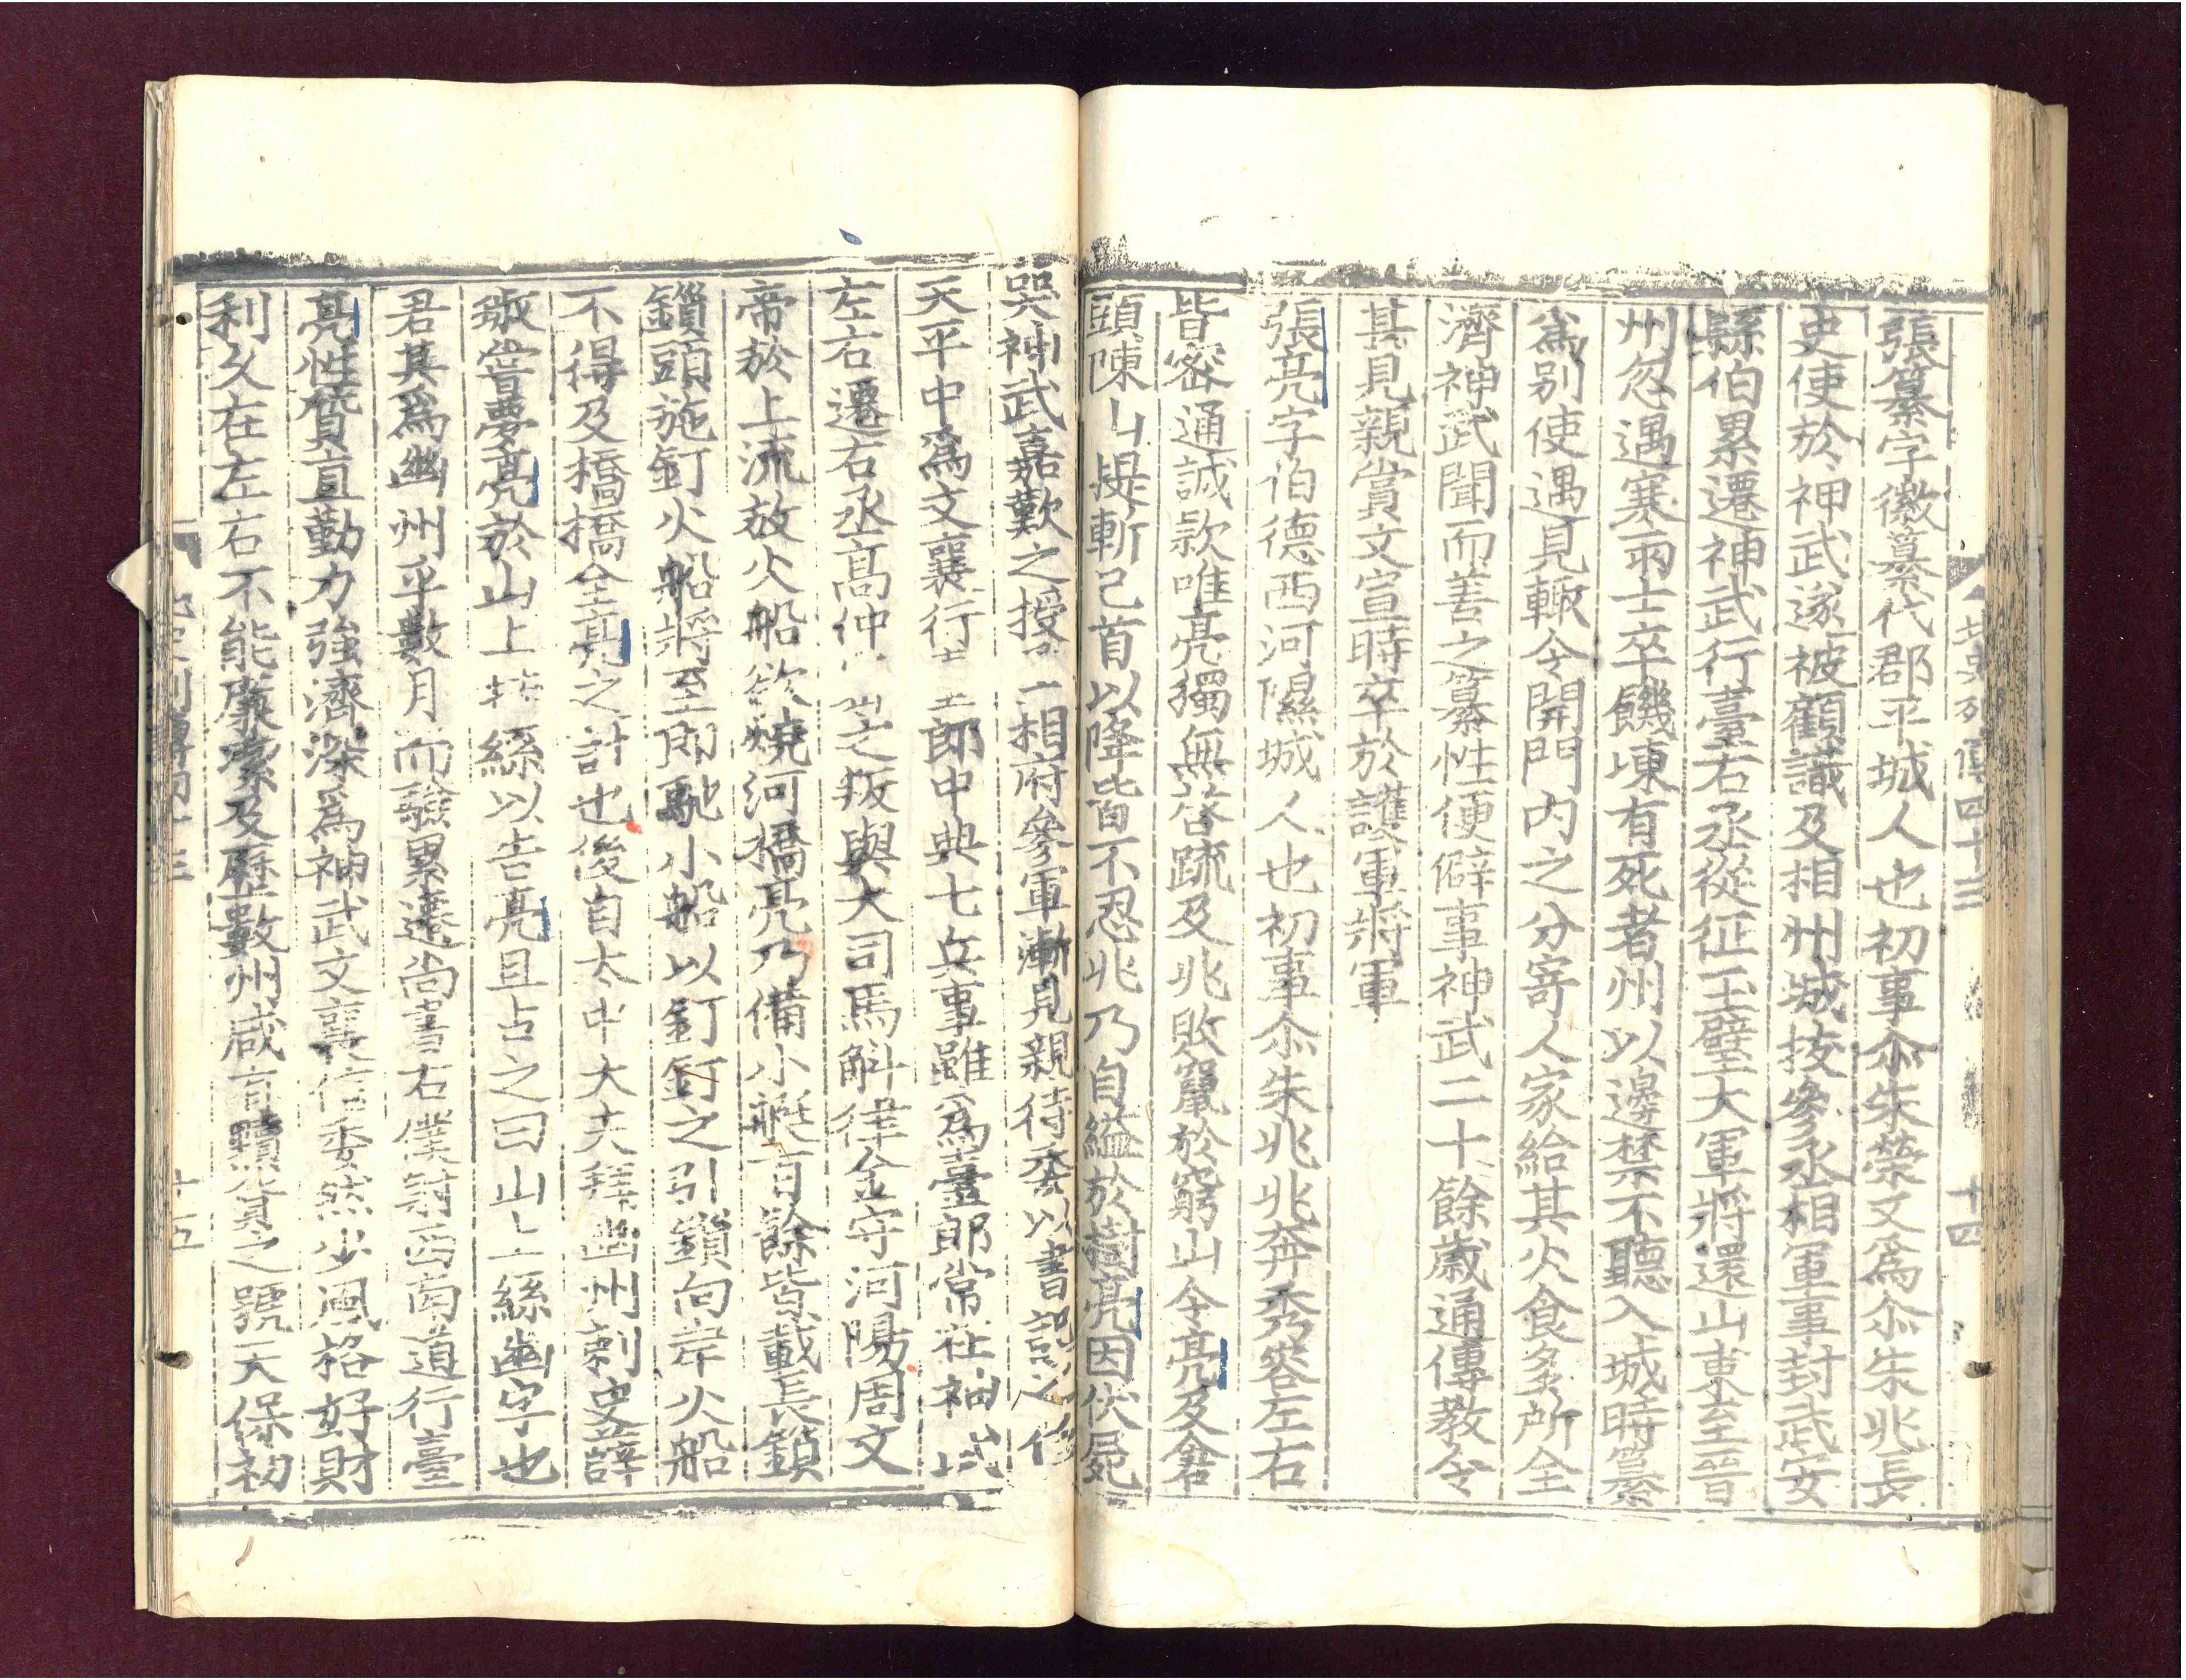 北史列傳四十三 十四
張纂字徽纂代郡平城人也初事尒朱榮又爲尒朱兆長
史使於神武遂被顧識及相州城拔參丞相軍事封武安
縣伯累遷神武行臺右丞從征玉壁大軍將還山東至晉
州忽遇寒雨士卒饑凍有死者州以邊禁不聽入城時纂
爲別使遇見輙令開門内之分寄人家給其火食多所全
濟神武聞而善之纂性便僻事神武二十餘歲通傳教令
甚見親賞文宣時卒於護軍將軍
張亮字伯德西河隰城人也初事尒朱兆兆奔秀容左右
皆密通誠款唯亮獨無啓疏及兆敗竄於窮山令亮及倉
頭陳山提斬己首以降皆不忍兆乃自縊於樹亮因伏屍
哭神武嘉歎之授 相府參軍漸見親待委以書記之
天平中爲文襄行 郎中典七兵事雖爲臺郎常在神武
左右遷右丞高仲 之叛與大司馬斛律金守河陽周文
帝於上流放火船欲燒河橋亮乃備小艇百餘皆載長鎖
鎖頭施釘火船將至即馳小船以釘釘之引鎖向岸火船
不得及橋橋全亮之計也後自太中大夫拜幽州刺史薛
琡嘗夢亮於山上挂絲以告亮且占之曰山上絲幽字也
君其爲幽州乎數月而驗累遷尚書右僕射西南道行臺
亮性質直勤力強濟深爲神武文襄信委然少風格好財
利久在左右不能廉潔及歷數州咸有黷貨之號天保初